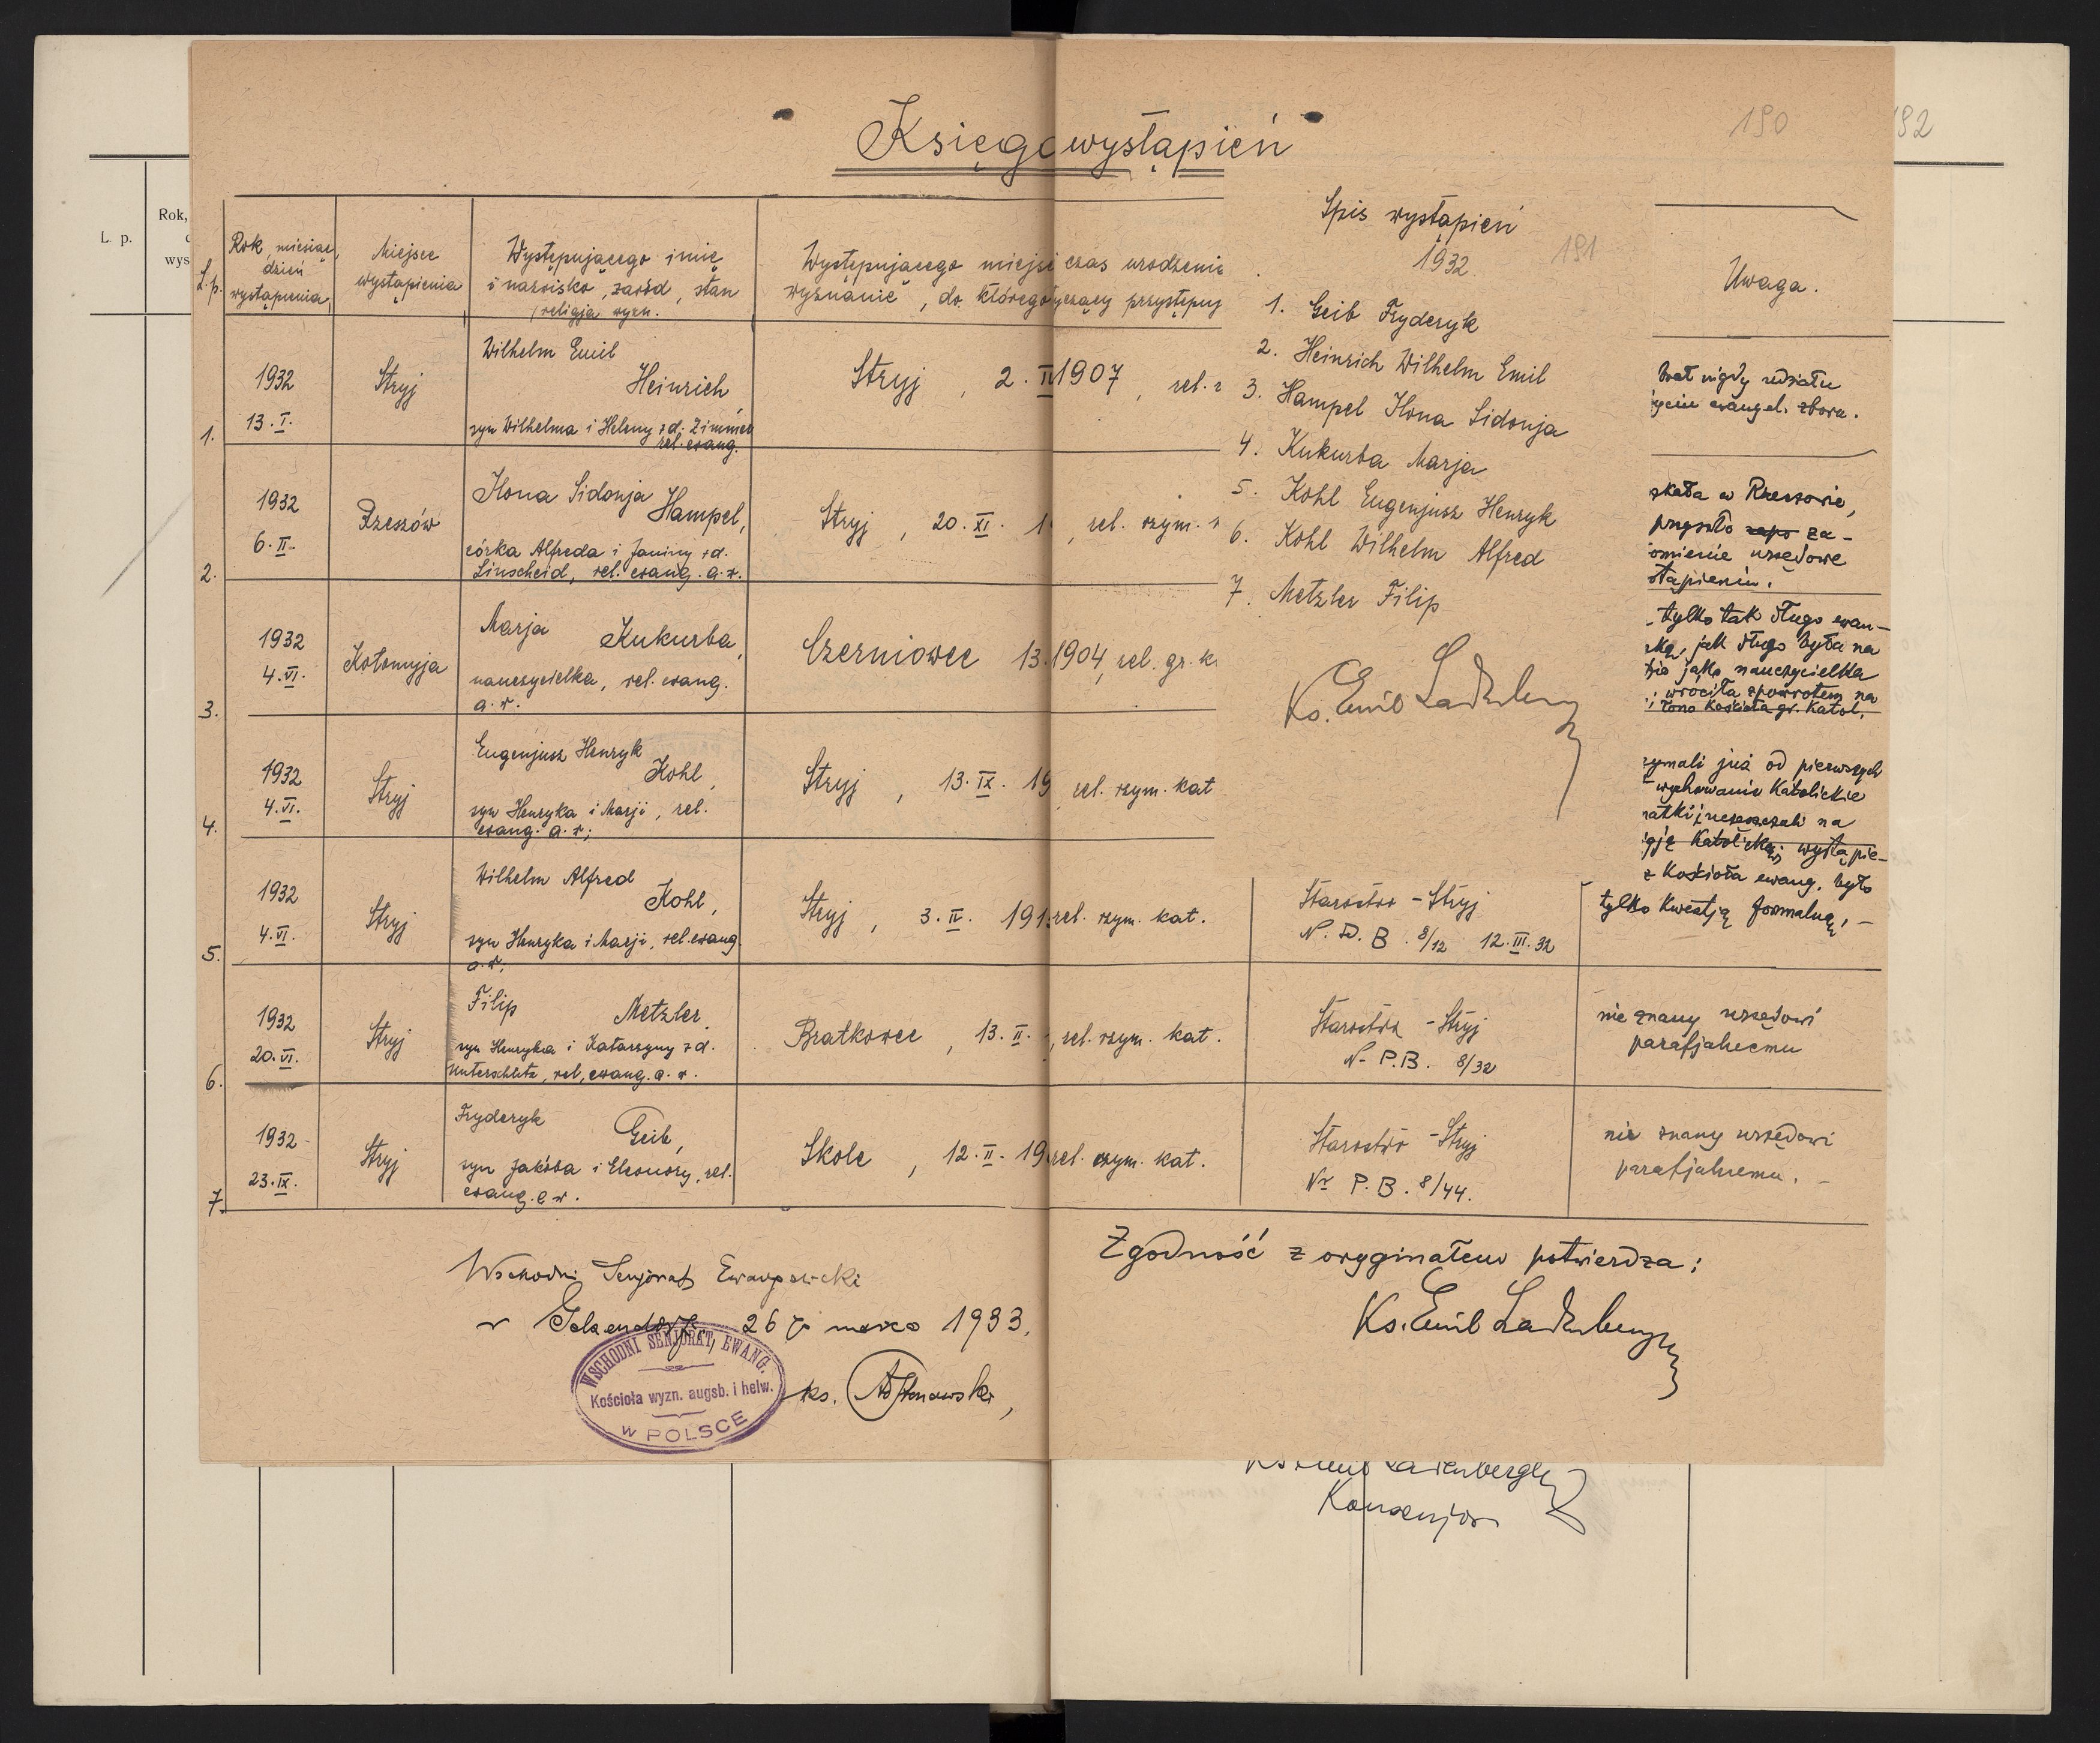 190
192
Księga wystąpień
L. p.
Rok,
wys
L.p.
Rok miesiąc, dzień wystąpienia
Miejsce wystąpienia
Występującego imię i nazwisko, zawód, stan religja wyzn.
Występującego miejsc czas urodzenia
wyznanie, do którego przystępuj
Uwaga.
1.
1932
13.I.
Stryj
Wilhelm Emil
Heinrich
syn Wilhelma i Heleny zd. Zimmer
rel. ewang.
Stryj, 2. II 1907, rel. r
nigdy udziału
życiu ewangel. zboru.
2.
1932
6.II.
Rzeszów
Ilona Sidonja
Hampel,
córka Alfreda i Janiny zd.
Linscheid, rel. ewang. a. w.
Stryj, 20. XI. 1 , rel. rzym.
szkała w Rzeszowie,
przyszło za-
omienie urzędowe
stąpieniu.
3.
1932
4.VI.
Kołomyja
Marja Kukurba,
nauczycielka, rel. ewang.
a. w.
Czerniowce 13. 1904, rel. gr. k.
tylko tak długo ewan-
ską, jak długo była na
jako nauczycielka
; wróciła zpowrotem na
łono Kościoła gr. katol.
4.
1932
4.VI.
Stryj
Eugenjusz Henryk
Kohl,
syn Henryka i Marji, rel.
ewang. a. w;
Stryj, 13. IX. 19 , rel. rzym. kat
zymali już od pierwszych
wychowanie katolickie
matki i uczęszczali na
igję katolicką; wystąpie-
z Kościoła ewang. było
tylko kwestją formalną. –
5.
1932
4.VI.
Stryj
Wilhelm Alfred
Kohl,
syn Henryka i Marji, rel. ewang.
a. w;
Stryj, 3. IV. 191 rel. rzym. kat.
Starostwo - Stryj
N. P. B. 8/12 12.III.32
6.
1932
20.VI.
Stryj
Filip Metzler,
syn Henryka i Katarzyny zd.
Unterschütz, rel. ewang. a. w.
Bratkowce, 13. II. , rel. rzym. kat.
Starostwo - Stryj
N- P.B. 8/32
nie znany urzędowi
parafjalnemu
7.
1932
23.IX.
Stryj
Fryderyk
Geib,
syn Jakóba i Eleonory, rel.
ewang. a w.
Skole, 12. II. 19 rel. rzym. kat.
Starostwo - Stryj
Nr P. B. 8/44.
nie znany urzędowi
parafjalnemu. –
Spis wystąpień
1932
191
1. Geib Fryderyk
2. Heinrich Wilhelm Emil
3. Hampel Ilona Sidonja
4. Kukurba Marja
5. Kohl Eugenjusz Henryk
6. Kohl Wilhelm Alfred
7. Metzler Filip
Ks. Emil Ladenberger
Wschodni Senjorat Ewangelicki
w Gelsendorfie, 26 marca 1933.
WSCHODNI SENJORAT, EWANG.
Kościoła wyzn. augsb. i helw.
W POLSCE
ks.
Zgodność z oryginałem potwierdza:
Ks. Emil Ladenberger
Ks Emil Ladenberger
Konsenjor